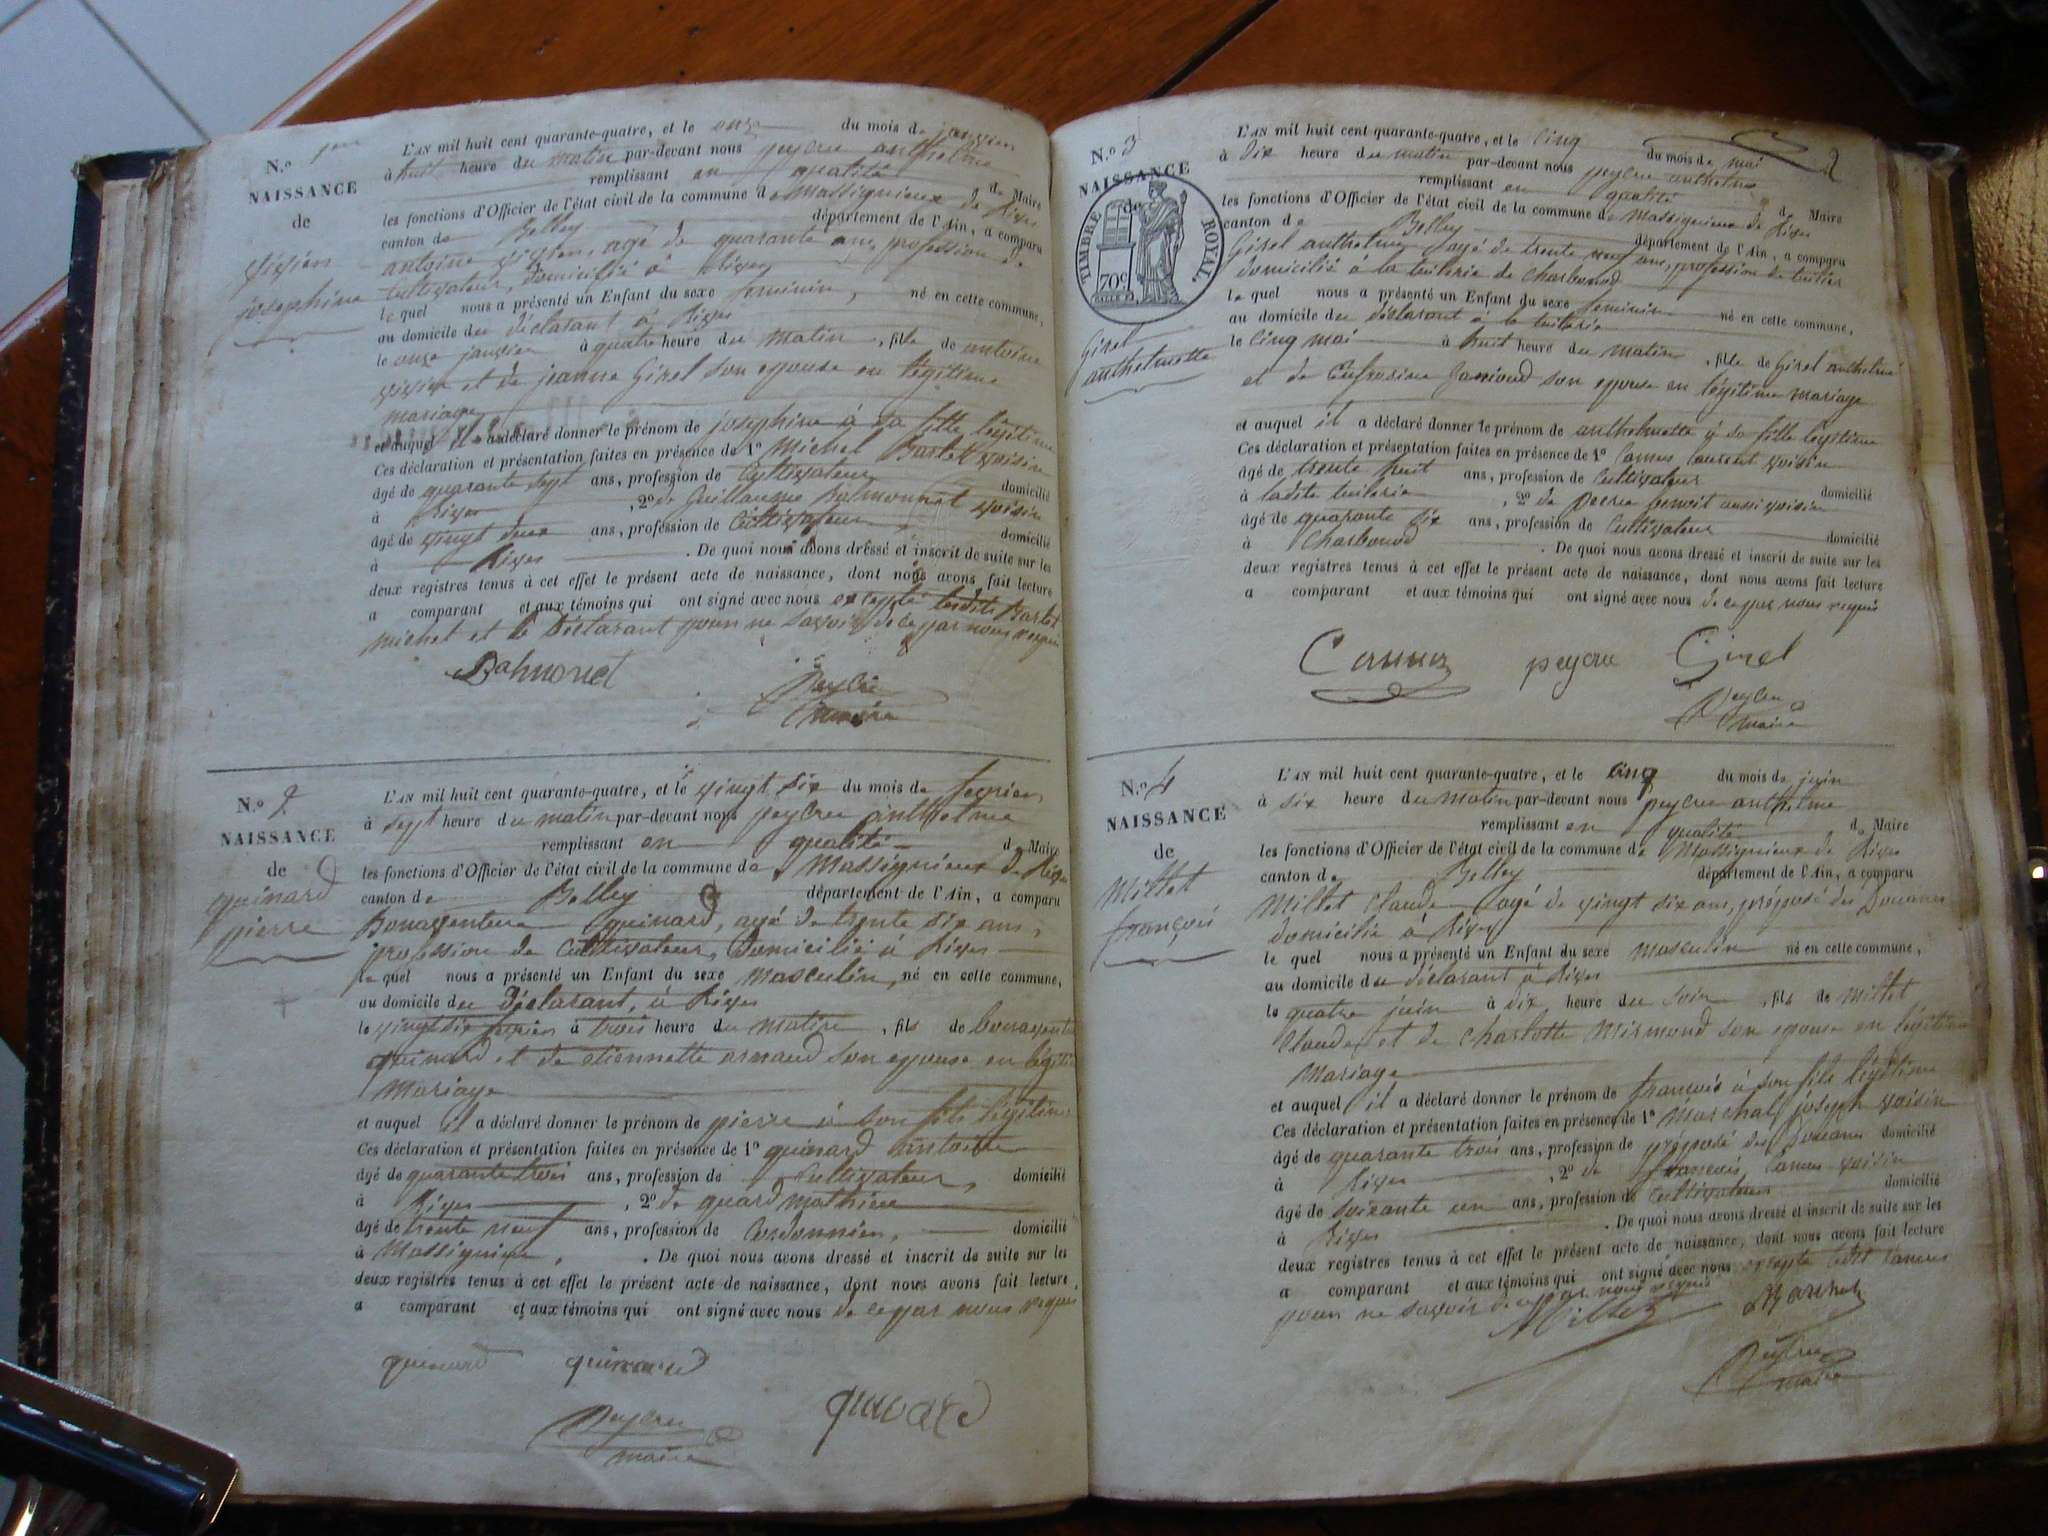 N.º 1er
NAISSANCE
de
vivien
josephine
L'AN mil huit cent quarante-quatre, et le onze du mois de janvier
à huit heure du matin par-devant nous peycru anthelme
remplissant en qualité de Maire
les fonctions d'Officier de l'état civil de la commune de Massignieux de Rives
canton de Belley département de l'Ain, a comparu
antoine vivien, agé de quarante ans, profession de
cultivateur, domicilié à Rives
le quel nous a présenté un Enfant du sexe feminin, né en cette commune,
au domicile du déclarant à Rives
le onze janvier à quatre heure du matin, fille de antoine
vivien et de jeanne Girel son epouse en légitime
mariage
et auquel il a déclaré donner le prénom de josephine à sa fille légitime
Ces déclaration et présentation faites en présence de 1º Michel Barlet voisin
âgé de quarante sept ans, profession de cultivateur domicilié
à Rives, 2º de Guillaume voisin
âgé de vingt deux ans, profession de Cultivateur domicilié
à Rives. De quoi nous avons dressé et inscrit de suite sur les
deux registres tenus à cet effet le présent acte de naissance, dont nous avons fait lecture
a comparant et aux témoins qui ont signé avec nous excepté ledit Barlet
michel et le Déclarant pour ne savoir de ce par nous requis
Peycru
maire
N.º 2
NAISSANCE
de
quinard
pierre
L'AN mil huit cent quarante-quatre, et le vingt six du mois de fevrier
à sept heure du matin par-devant nous peycru anthelme
remplissant en qualité de Maire
les fonctions d'Officier de l'état civil de la commune de Massignieux de Rives
canton de Belley département de l'Ain, a comparu
Bonaventure quinard, agé de trente six ans,
profession de Cultivateur, Domicilié à Rives
le quel nous a présenté un Enfant du sexe masculin, né en cette commune,
au domicile du Déclarant, à Rives
le vingt six fevrier à trois heure du matin, fils de bonaventure
quinard et de etiennette arnaud son epouse en légitime
Mariage
et auquel il a déclaré donner le prénom de pierre à son fils légitime
Ces déclaration et présentation faites en présence de 1º quinard antoine
âgé de quarante trois ans, profession de Cultivateur, domicilié
à Rives, 2º de mathieu
âgé de trente neuf ans, profession de Cordonnier, domicilié
à Massignieu. De quoi nous avons dressé et inscrit de suite sur les
deux registres tenus à cet effet le présent acte de naissance, dont nous avons fait lecture,
a comparant et aux témoins qui ont signé avec nous de ce par nous requis
quinard quinard
Peycru
maire
N.º 3
NAISSANCE
de
TIMBRE ROYAL.
70c
Girel
anthelmette
2
L'AN mil huit cent quarante-quatre, et le Cinq du mois de mai
à dix heure du matin par-devant nous peycru anthelme
remplissant en qualité de Maire
les fonctions d'Officier de l'état civil de la commune de Massignieux de Rives
canton de Belley département de l'Ain, a comparu
Girel anthelme agé de trente neuf ans, profession de tuilier
domicilié à la tuilerie de Charbonod
le quel nous a présenté un Enfant du sexe feminin né en cette commune,
au domicile du déclarant à la tuilerie
le Cinq mai à huit heure du matin, fille de Girel anthelme
et de son epouse en légitime mariage
et auquel il a déclaré donner le prénom de anthelmette à sa fille légitime
Ces déclaration et présentation faites en présence de 1º laurent voisin
âgé de trente huit ans, profession de Cultivateur domicilié
à ladite tuilerie, 2º de benoit aussi voisin
âgé de quarante six ans, profession de Cultivateur domicilié
à Charbonod. De quoi nous avons dressé et inscrit de suite sur les
deux registres tenus à cet effet le présent acte de naissance, dont nous avons fait lecture
a comparant et aux témoins qui ont signé avec nous de ce par nous requis
peycru Girel
Peycru
maire
N.º 4
NAISSANCE
de
Millet
françois
L'AN mil huit cent quarante-quatre, et le cinq du mois de juin
à six heure du matin par-devant nous peycru anthelme
remplissant en qualité de Maire
les fonctions d'Officier de l'état civil de la commune de Massignieux de Rives
canton de Belley département de l'Ain, a comparu
Millet Claude agé de vingt six ans, préposé des Douanes
domicilié à Rives
le quel nous a présenté un Enfant du sexe masculin né en cette commune,
au domicile du déclarant à Rives
le quatre juin à dix heure du soir, fils de Millet
Claude et de Charlotte Mirmond son epouse en légitime
Mariage
et auquel il a déclaré donner le prénom de francois à son fils légitime
Ces déclaration et présentation faites en présence de 1º Marchal joseph voisin
âgé de quarante trois ans, profession de préposé des Douanes domicilié
à Rives, 2º de francois voisin
âgé de soixante un ans, profession de cultivateur domicilié
à Rives. De quoi nous avons dressé et inscrit de suite sur les
deux registres tenus à cet effet le présent acte de naissance, dont nous avons fait lecture
a comparant et aux témoins qui ont signé avec nous excepté ledit
pour ne savoir de ce par nous requis
Millet Marchal
Peycru
maire